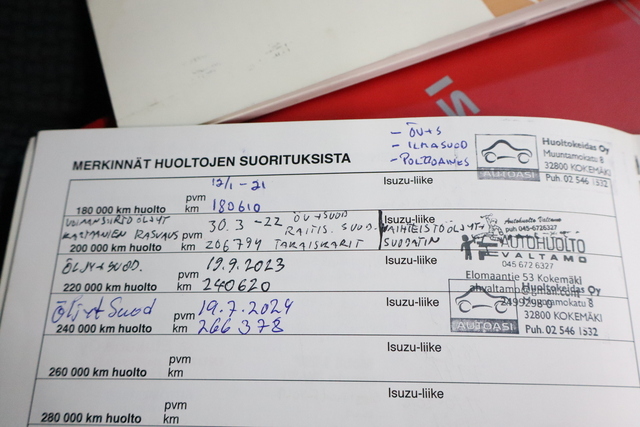 ISUZU
MERKINNÄT HUOLTOJEN SUORITUKSISTA
- ÖV+S
- ILMASUOD
- POLTTOAINES
Huoltokeidas Oy
Muuntamokatu 8
32800 KOKEMÄKI
Puh. 02 546 1532
AUTOASI
180 000 km huolto
pvm 12/1-21
km 180610
Isuzu-liike
VOIMANSIIRTO ÖLJYT
KARDAANIEN RASVAUS
200 000 km huolto
pvm 30.3-22 ÖV+SUOD
RAITIS. SUOD.
km 206794 TAKAISKARIT
VAIHTEISTOÖLJYT+
SUODATIN
Autohuolto Valtamo
puh 045-6726327
AUTOHUOLTO
VALTAMO
045 672 6327
Elomaantie 53 Kokemäki
ahvaltamo@gmail.com
ÖLJY+SUOD.
220 000 km huolto
pvm 19.9.2023
km 240620
Isuzu-liike
Öljyt Suod
240 000 km huolto
pvm 19.7.2024
km 266 378
Isuzu-liike
Huoltokeidas Oy
Muuntamokatu 8
32800 KOKEMÄKI
Puh. 02 546 1532
AUTOASI
260 000 km huolto
pvm
km
Isuzu-liike
280 000 km huolto
pvm
km
Isuzu-liike